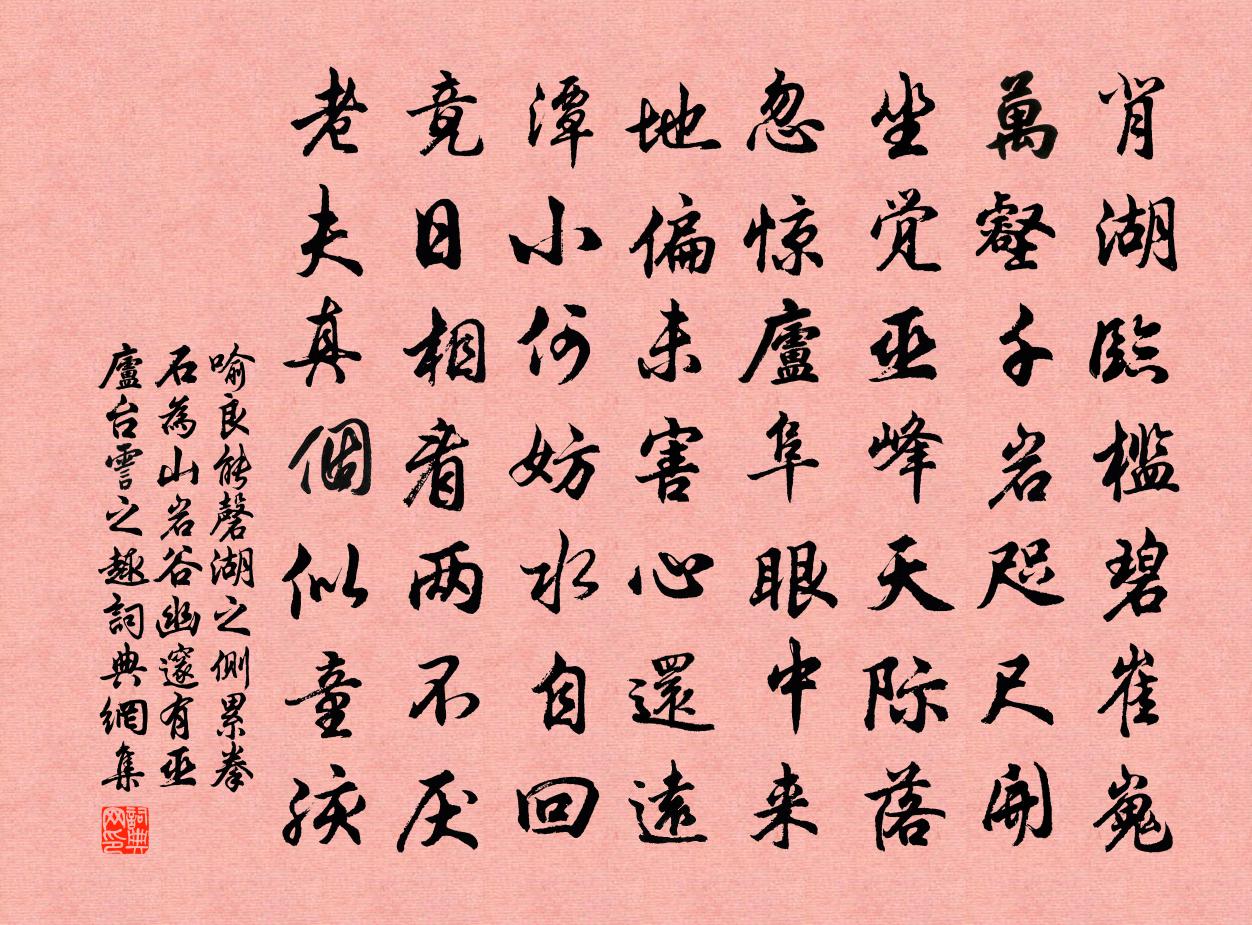 肖湖臨檻碧崔嵬
萬壑千岩咫尺開
坐觉巫峰天际落
忽惊廬阜眼中来
地偏未害心還遠
潭小何妨水自回
竟日相看两不厌
老夫真個似童孩
喻良能磬湖之側累拳
石為山岩谷幽邃有巫
廬台雲之趣詞典網集
詞典网印